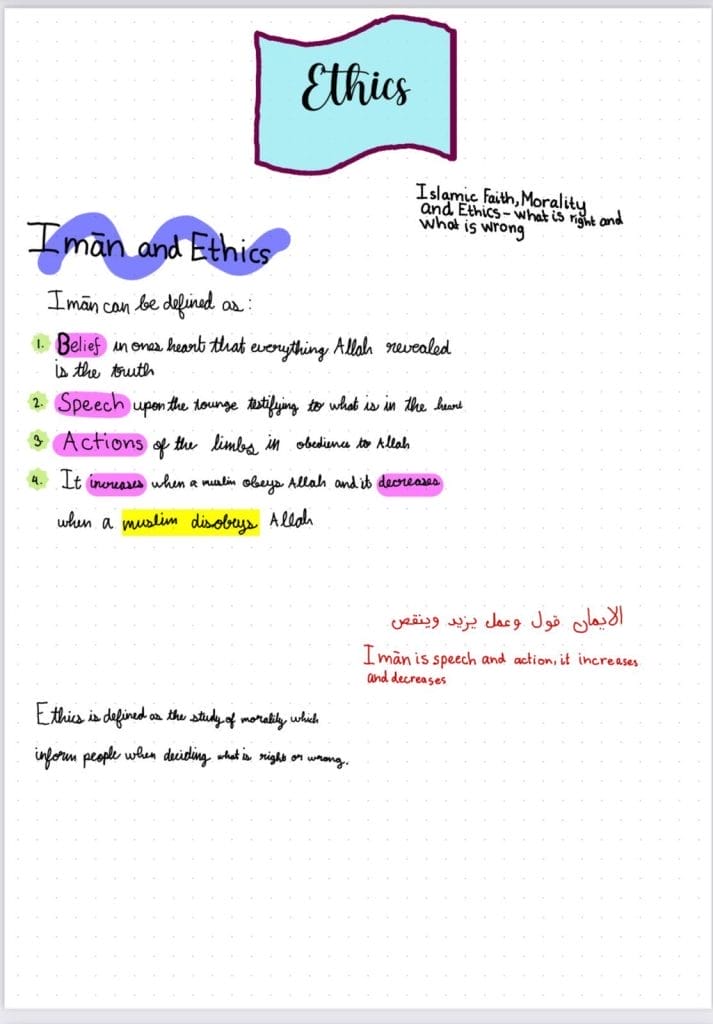 Ethics
Islamic Faith, Morality
and Ethics - what is right and
what is wrong
Imān and Ethics
Imān can be defined as:
1. Belief in ones heart that everything Allah revealed
is the truth
2. Speech upon the tounge testifying to what is in the heart
3. Actions of the limbs in obedience to Allah
4. It increases when a muslim obeys Allah and it decreases
when a muslim disobeys Allah
الايمان قول وعمل يزيد وينقص
Imān is speech and action, it increases
and decreases
Ethics is defined as the study of morality which
inform people when deciding what is right or wrong.